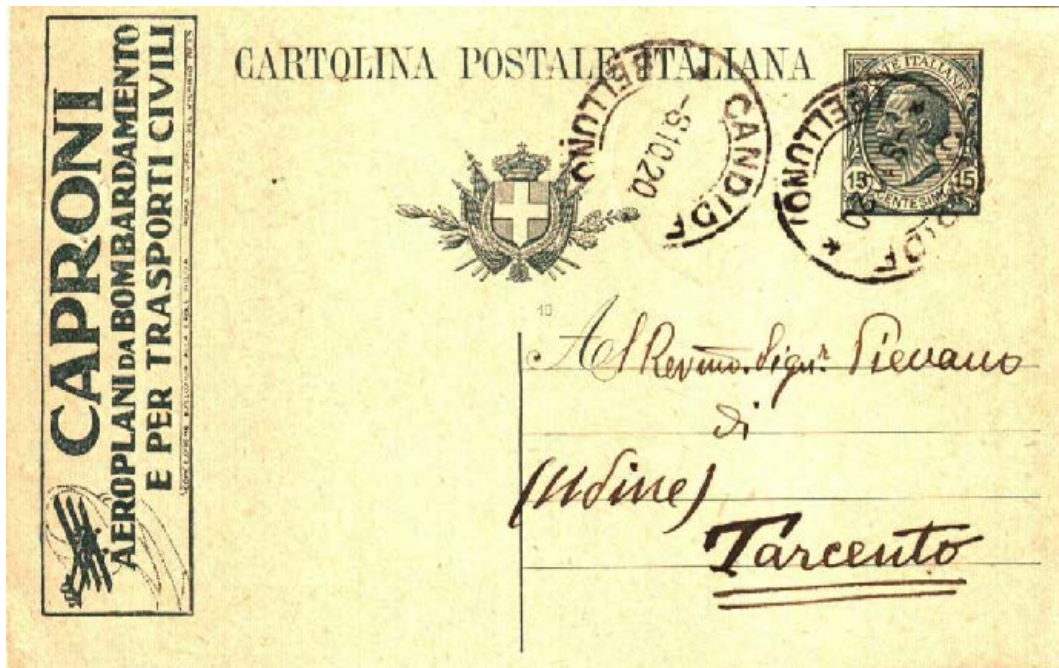 CAPRONI
AEROPLANI DA BOMBARDAMENTO
E PER TRASPORTI CIVILI
CARTOLINA POSTALE ITALIANA
CANDIDE
BELLUNO
-8 10 20
POSTE ITALIANE
15 15
CENTESIMI
CANDIDE
(BELLUNO)
20
10
Al Revmo. Sign.r Pievano
di
(Udine)
Tarcento